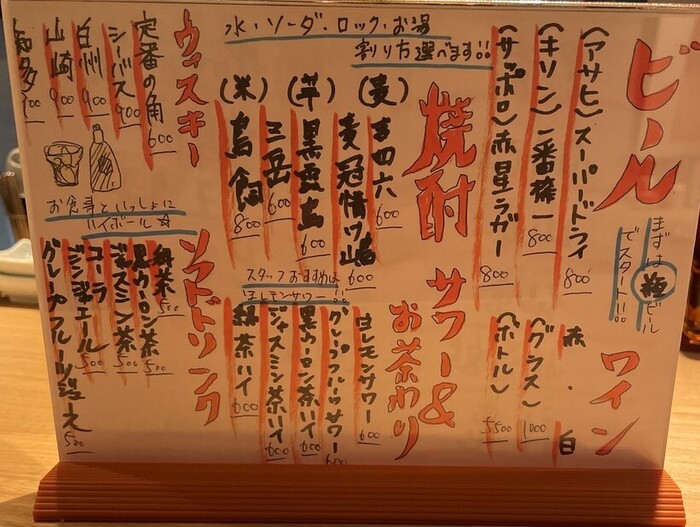 ビール
まずは瓶ビール
でスタート!!
(アサヒ)スーパードライ 800
(キリン)一番搾り 800
(サッポロ)赤星ラガー 800
水・ソーダ・ロック・お湯
割り方選べます!!
焼酎
(麦) 吉四六 600
麦冠情け嶋 600
(芋) 黒霧島 600
三岳 600
(米) 鳥飼 800
ウィスキー
定番の角 600
シーバス 900
白州 900
山崎 900
知多 900
お食事といっしょに
ハイボール☆
ワイン
赤・白
(グラス) 1000
(ボトル) 5500
サワー&
お茶わり
スタッフおすすめは
生レモンサワー!!
生レモンサワー 600
グレープフルーツサワー 600
黒ウーロン茶ハイ 600
ジャスミン茶ハイ 600
緑茶ハイ 600
ソフトドリンク
緑茶 500
黒ウーロン茶 500
ジャスミン茶 500
コーラ
ジンジャエール 500
グレープフルーツジュース 500